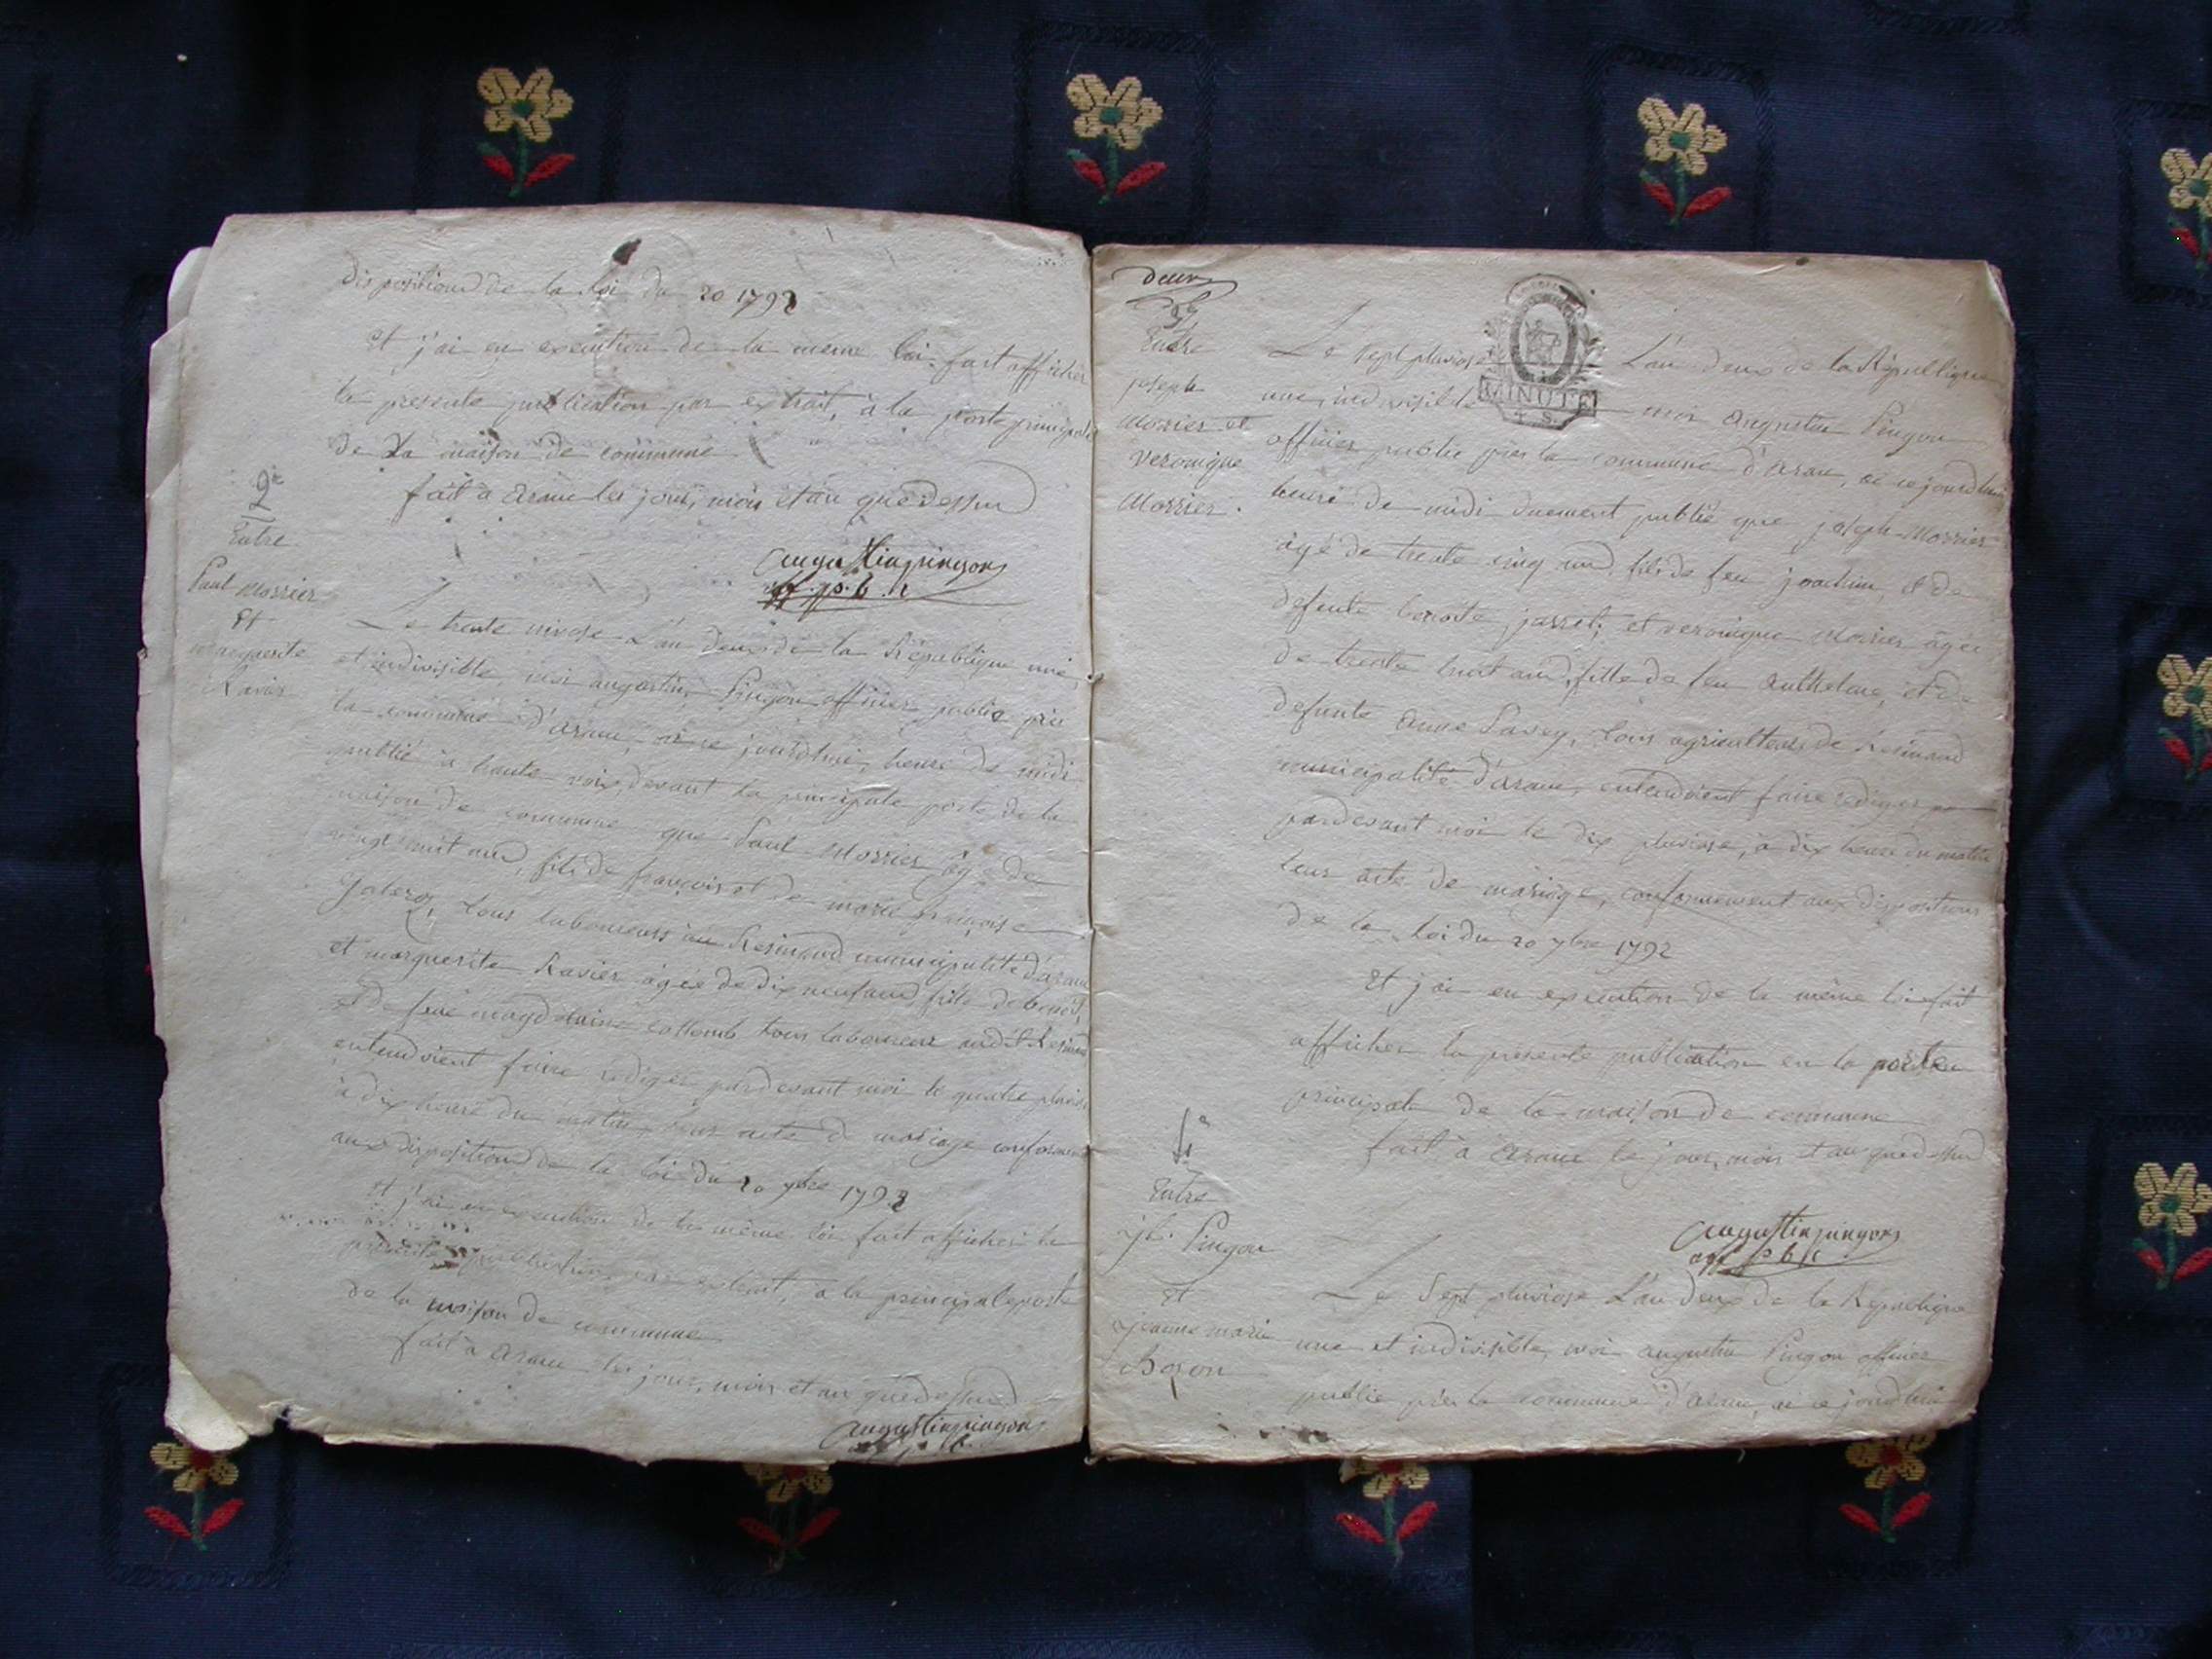 dispositions de la loi du 20 1792
Et j'ai en execution de la meme loi fait afficher
la presente publication par extrait, à la porte principale
de la maison de commune
fait à arane les jour, mois et an que dessus
augustin pingon
off. p.b.c
2e
Entre
Paul Morrier
Et
marguerite
Ravier
Le trente nivose L'an deux de la République une
et indivisible, moi augustin Pingon officier public près
la commune d'arane, ai ce jourd'hui, heure de midi
publié à haute voix, devant la principale porte de la
maison de commune que Paul Morrier âgé de
vingt huit ans, fils de françois et de marie françoise
tous laboureurs au Resinand municipalité d'arane
et marguerite Ravier âgée de dix neuf ans, fille de benoit,
et de feue magdelaine collomb tous laboureur audit Resinand
entendoient faire rediger pardevant moi le quatre pluviose
à dix heure du matin, leur acte de mariage conformement
aux dispositions de la loi du 20 7bre 1792
Et j'ai en execution de la même loi fait afficher la
presente publication, par extrait, à la principale porte
de la maison de commune
fait à arane les jour, mois et an que dessus
augustin pingon
deux
3e
Entre
joseph
Morier et
Veronique
Morrier.
Le sept pluviose L'an deux de la République
une, indivisible moi augustin Pingon
officier public près la commune d'arane, ai ce jourd'hui
heure de midi duement publié que joseph Morrier
âgé de trente cinq ans, fils de feu joachim, et de
defunte benoite jarret; et veronique Morrier âgée
de trente huit ans, fille de feu anthelme, et de
defunte anne Savey, tous agriculteurs de Resinand
municipalité d'arane, entendoient faire rediger
pardevant moi le dix pluviose, à dix heure du matin
leur acte de mariage, conformement aux dispositions
de la loi du 20 7bre 1792
Et j'ai en execution de la même loi fait
afficher la presente publication en la porte
principale de la maison de commune
fait à arane le jour, mois et an que dessus
augustin pingon
off p b c
MINUTE
4 S.
4e
Entre
Pingon
et
jeanne marie
Bozon
Le Sept pluviose L'an deux de la République
une et indivisible, moi augustin Pingon officier
public près la commune d'arane, ai ce jourd'hui